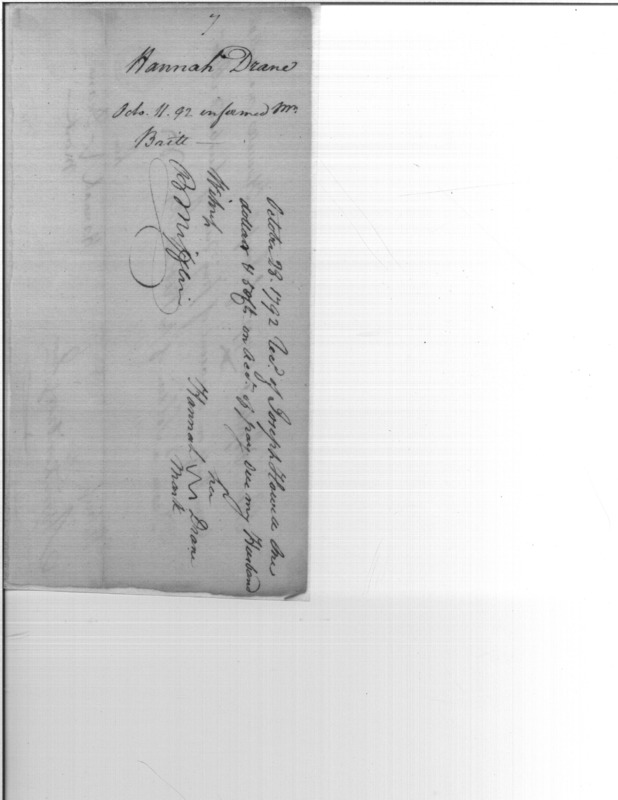 7
Hannah Drane
Octo. 11. 92 informed Mr.
Britt —
October 23. 1792 Recd. of Joseph Howell One
dollar & 50/ on acct. of pay due my Husband
her
Hannah Drane
Mark
Witness
B Mifflin